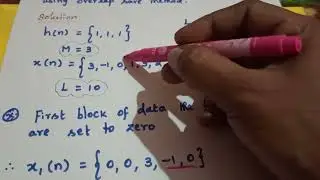 using overlap save method.
Solution
h(n) = {1, 1, 1}
M = 3
x(n) = {3, -1, 0, 1, 3, 2
L = 10
First block of data
are set to zero
∴ x₁(n) = {0, 0, 3, -1, 0}